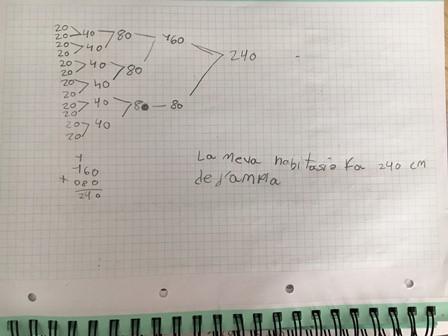 20
20 40
20 80
20 40 160
20
20 40 240
20 80
20 40
20
20 40
20
20 40
20 80 80
20 40
20
1
160
+ 080
240
La meva habitasio fa 240 cm
de d'ampla